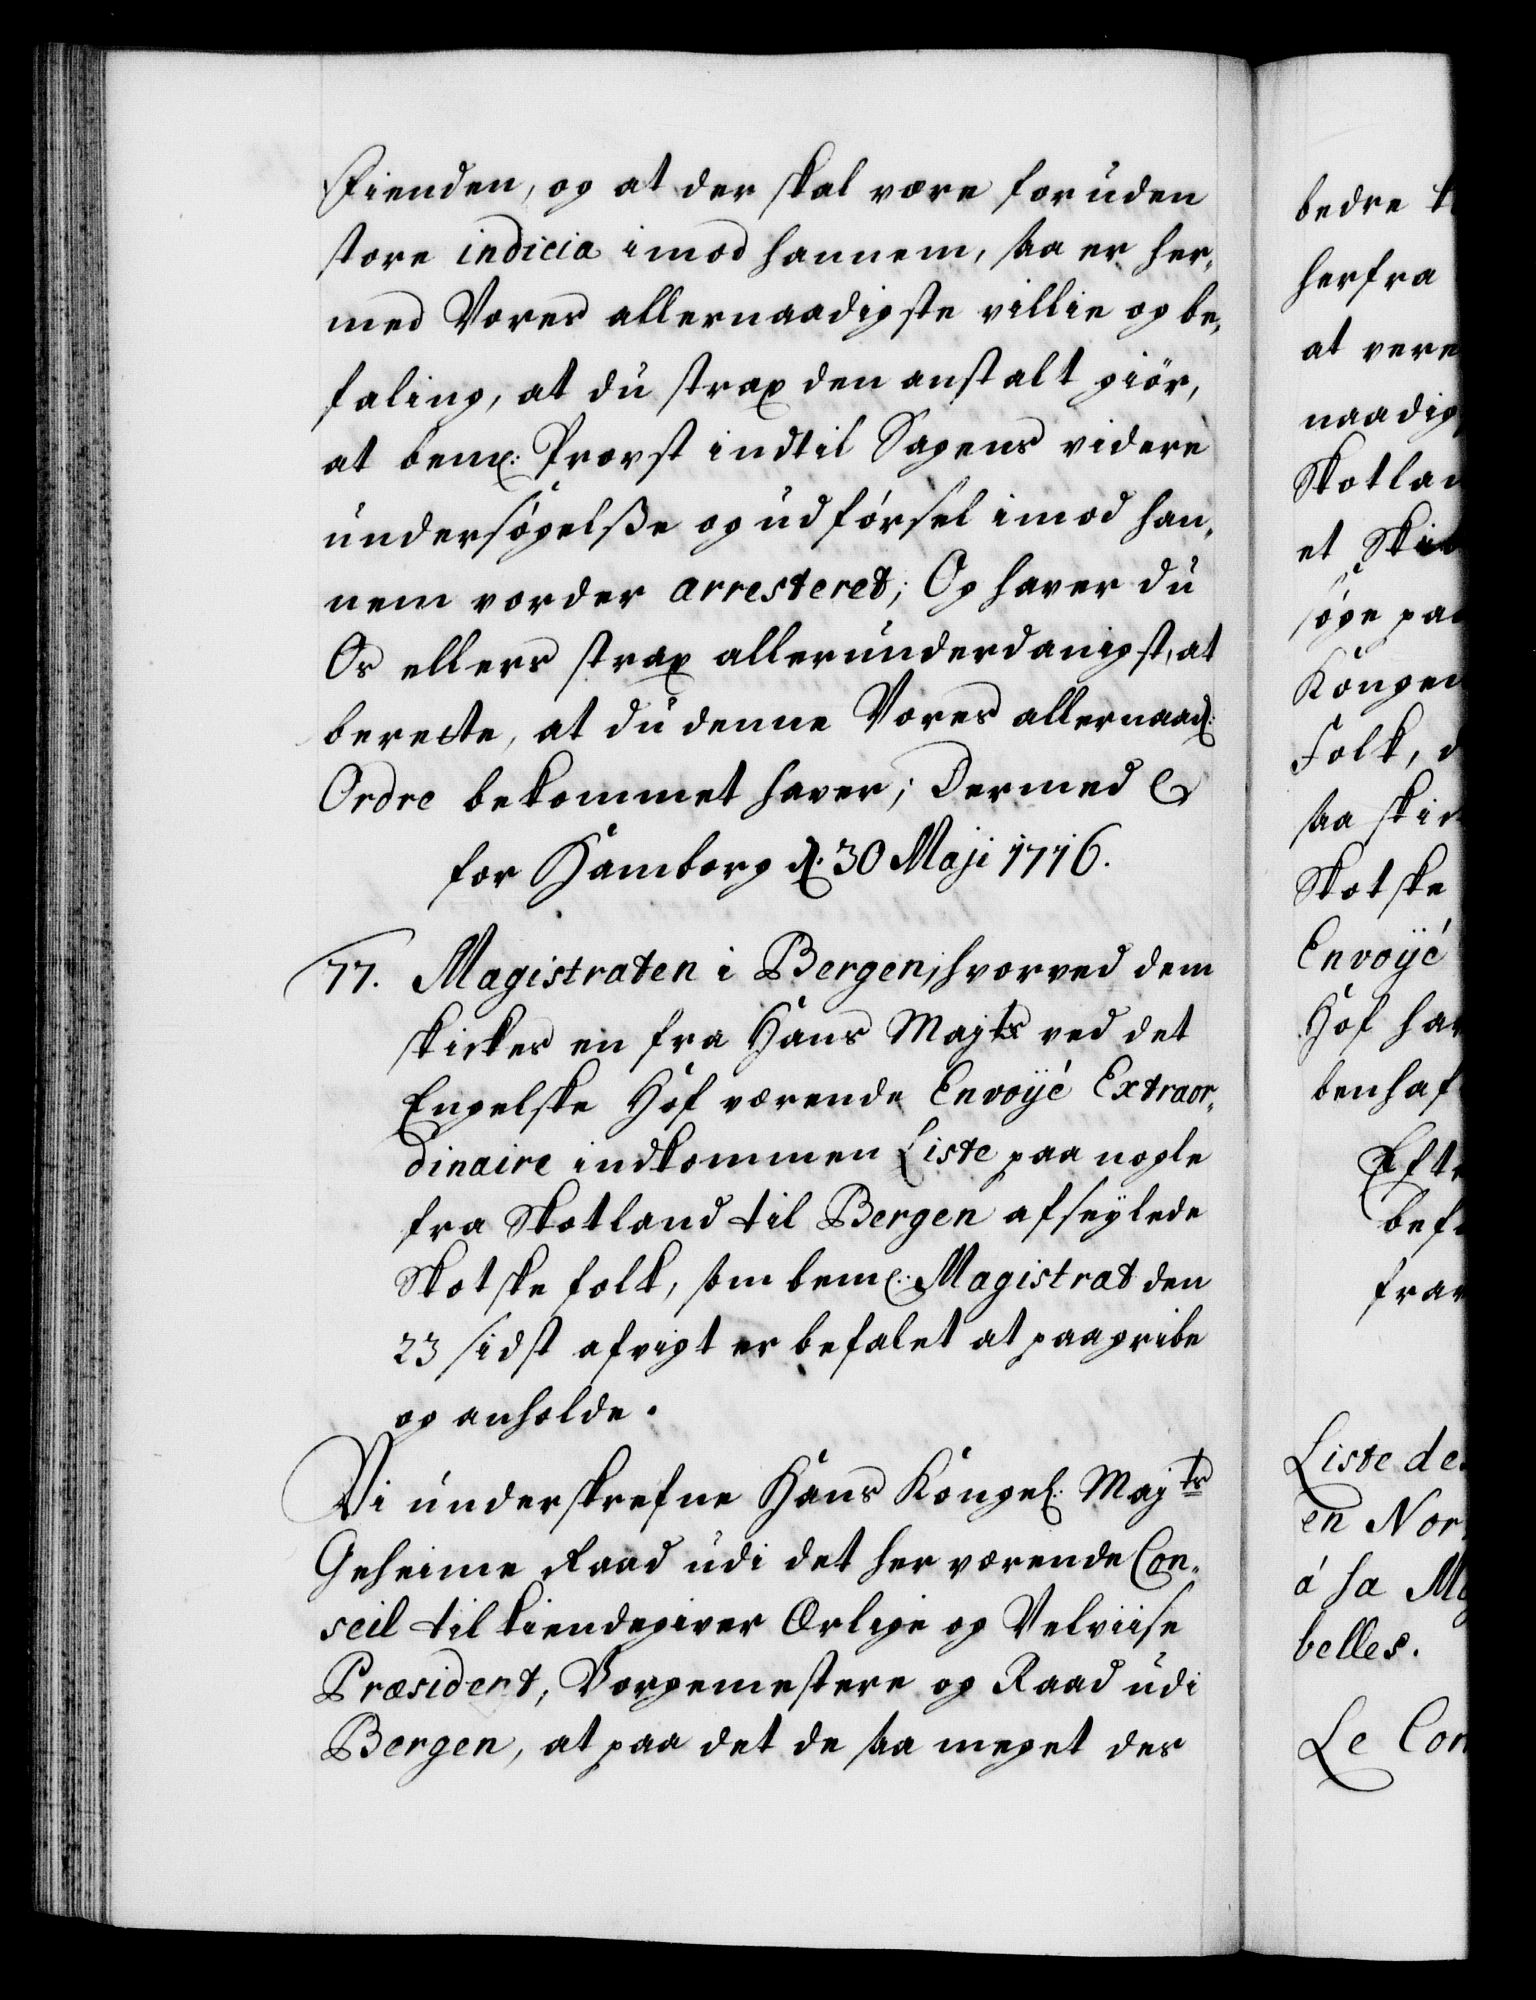 Fienden, og at der skal være foruden
store indicia imod hannem, saa er her-
med Vores allernaadigste villie og be-
faling, at du strax den anstalt giör,
at bem: Provst indtil Sagens videre
undersögelsse og udförsel imod han-
nem vorder arresteret; Og haver du
Os ellers strax allerunderdanigst, at
berette, at du denne Vores allernaad:
Ordre bekommet haver; Dermed &
for Hamborg d: 30 Maji 1716.
77. Magistraten i Bergen, hvorved dem
skickes en fra Hans Majts ved det
Engelske Hof værende Envoÿé Extraor-
dinaire indkommen Liste paa nogle
fra Skotland til Bergen afseÿlede
Skotske folk, som bem: Magistrat den
23 sidst afvigt er befalet at paagribe
og anholde.
Vi underskrefne Hans Kongel: Majts
Geheime Raad udi det her værende Con-
seil tilkiendegiver Ærlige og Velviise
Præsident, Borgemestere og Raad udi
Bergen, at paa det de saa meget des
bedre
herfra
at vere
naadig
Skotlan
et
söge paa
Kongen
Folk, d
saa
Skotske
Envoÿé
Hof har
benhaf
Efte
befa
fra
Liste de
en Nor
á sa Ma
belles.
Le Com